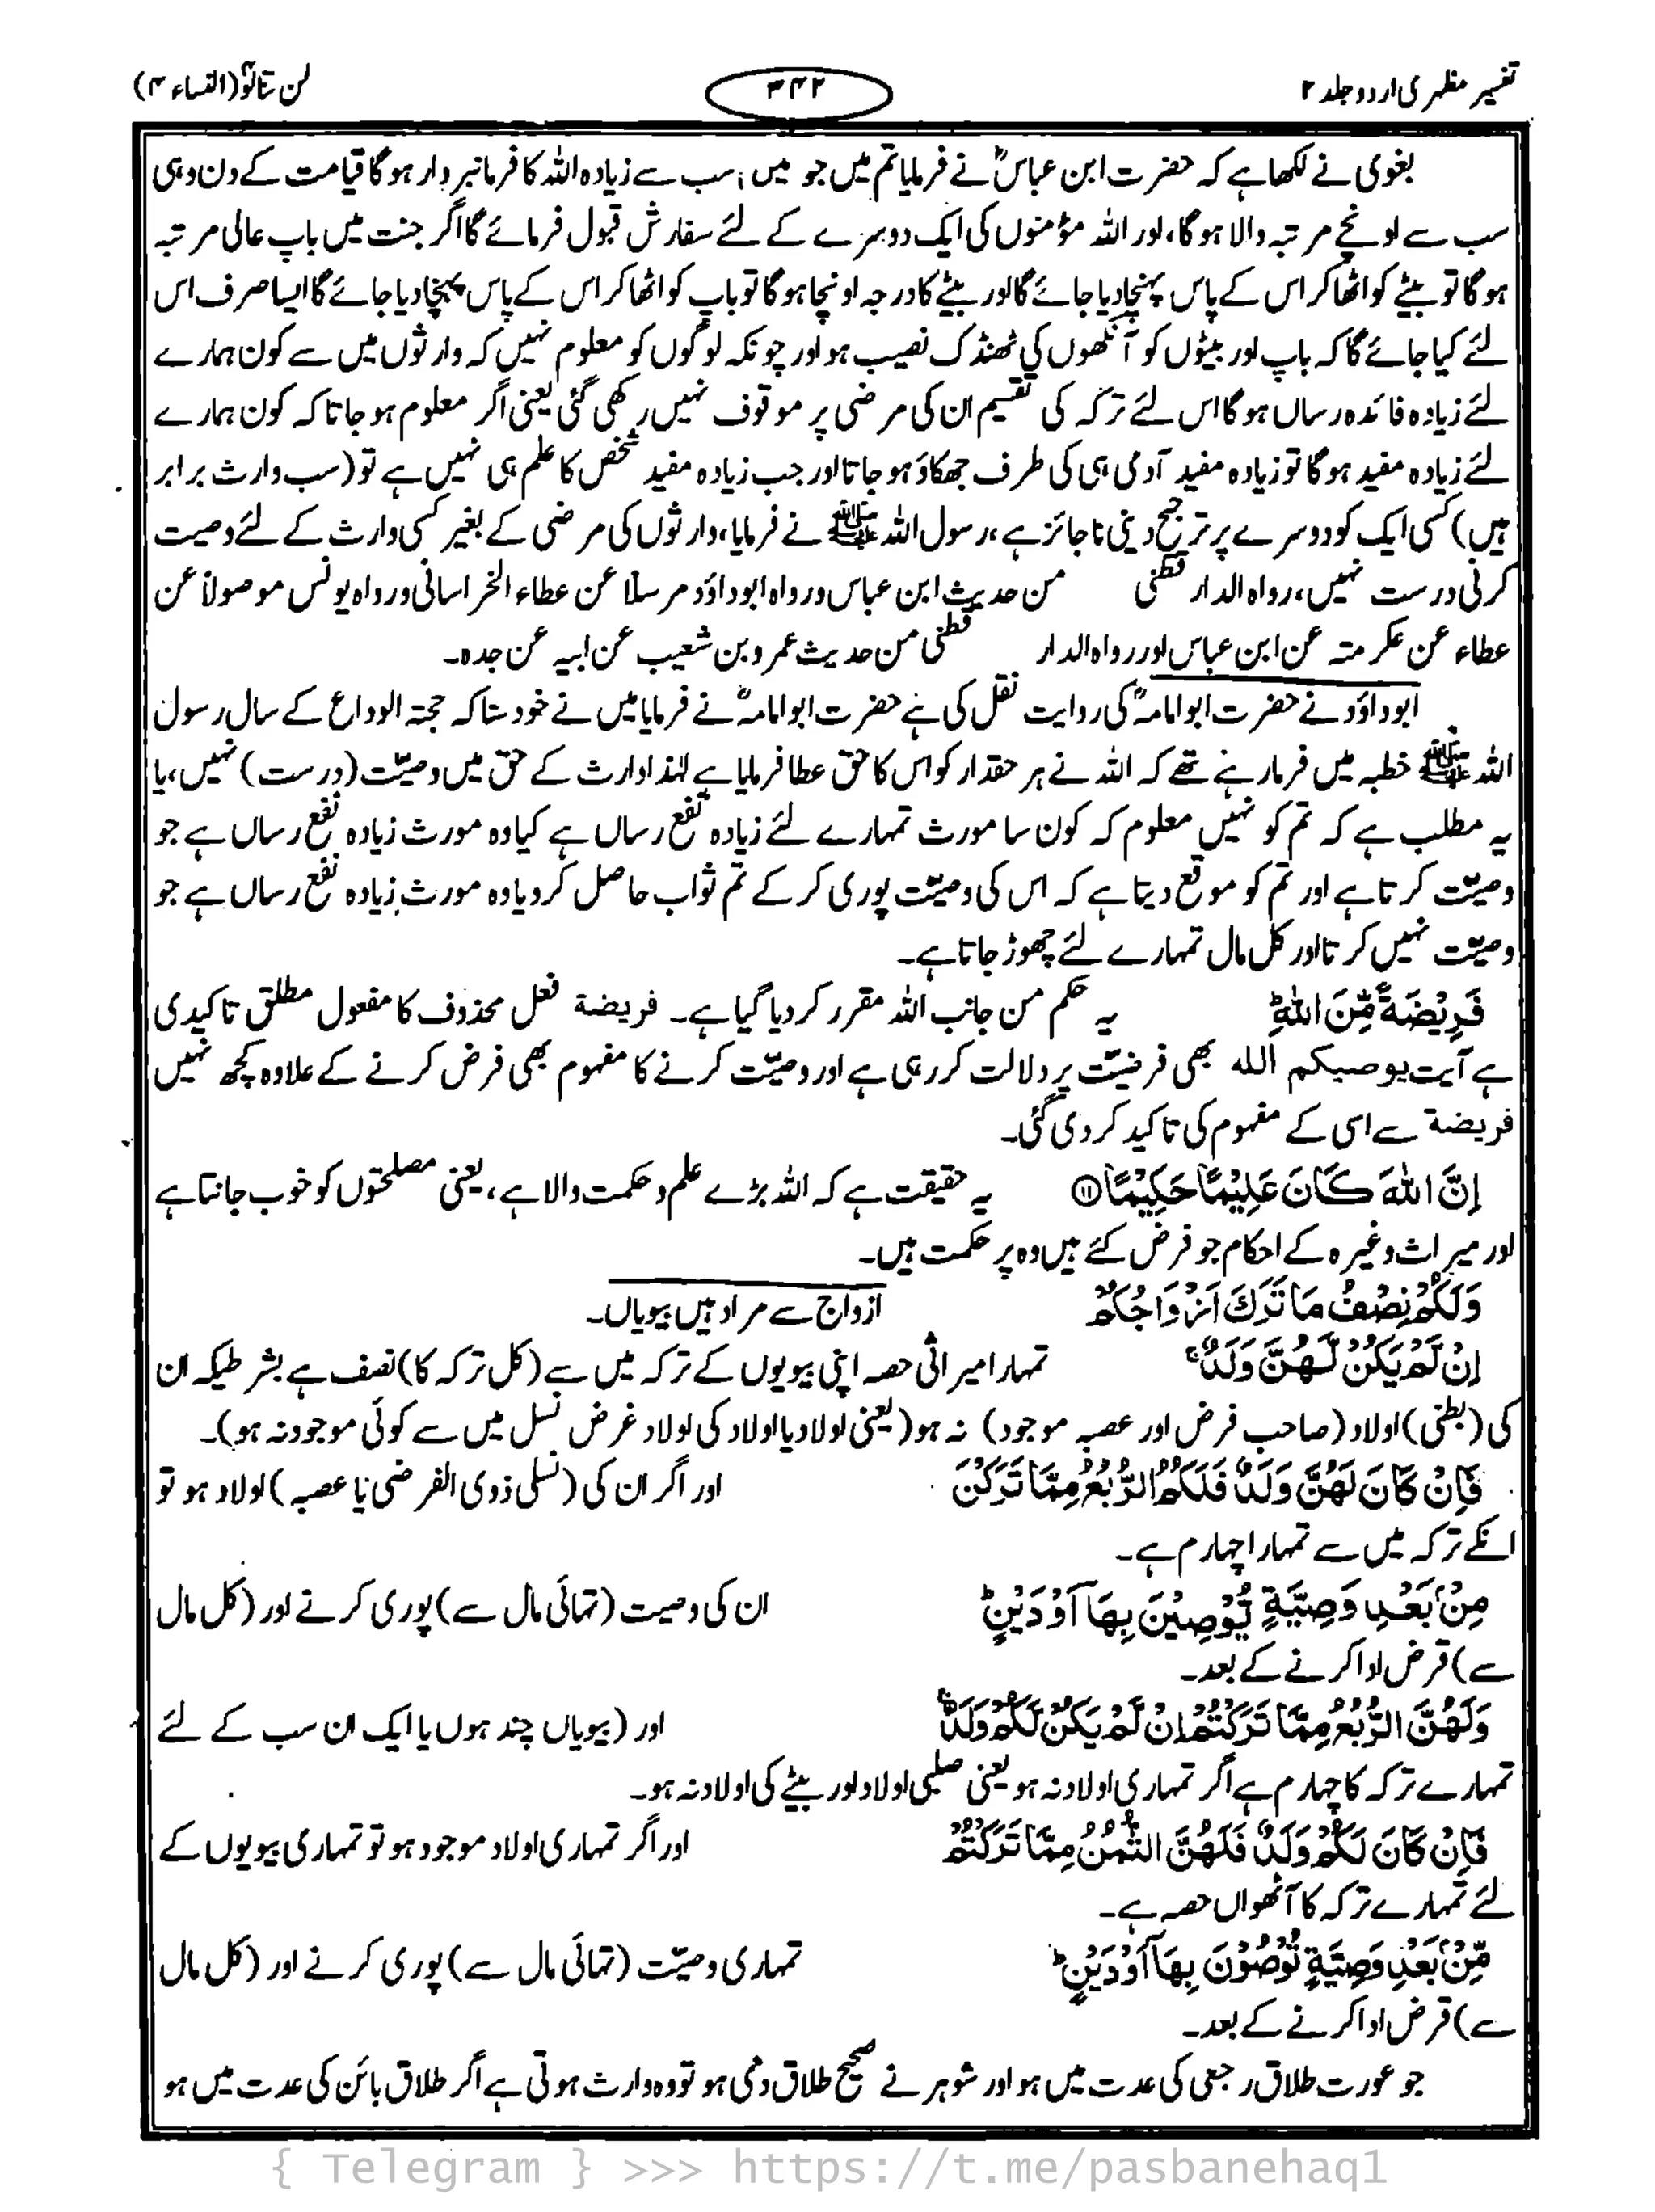 تفسیر مظہری اردو جلد ۲
۳۴۲
لن تنالوٓا (النساء ۴)
بغوی نے لکھا ہے کہ حضرت ابن عباسؓ نے فرمایا تم میں جو میں سب سے زیادہ اللہ کا فرمانبردار ہوگا قیامت کے دن وہی
سب سے اونچے مرتبہ والا ہوگا، اور اللہ مؤمنوں کی ایک دوسرے کے لئے سفارش قبول فرمائے گا اگر جنت میں باپ عالی مرتبہ
ہوگا تو بیٹے کو اٹھا کر اس کے پاس پہنچا دیا جائے گا اور بیٹے کا درجہ اونچا ہوگا تو باپ کو اٹھا کر اس کے پاس پہنچا دیا جائے گا ایسا صرف اس
لئے کیا جائے گا کہ باپ اور بیٹوں کو آنکھوں کی ٹھنڈک نصیب ہو اور چونکہ لوگوں کو معلوم نہیں کہ وارثوں میں سے کون ہمارے
لئے زیادہ فائدہ رساں ہوگا اس لئے ترکہ کی تقسیم ان کی مرضی پر موقوف نہیں رکھی گئی یعنی اگر معلوم ہو جاتا کہ کون ہمارے
لئے زیادہ مفید ہوگا تو زیادہ مفید آدمی ہی کی طرف جھکاؤ ہو جاتا اور جب زیادہ مفید شخص کا علم ہی نہیں ہے تو (سب وارث برابر
ہیں) کسی ایک کو دوسرے پر ترجیح دینی ناجائز ہے، رسول اللہ ﷺ نے فرمایا، وارثوں کی مرضی کے بغیر کسی وارث کے لئے وصیت
کرنی درست نہیں، رواہ الدار قطنی من حدیث ابن عباس ورواہ ابوداؤد مرسلاً عن عطاء الخراسانی ورواہ یونس موصولاً عن
عطاء عن عکرمتہ عن ابن عباس اور رواہ الدار قطنی من حدیث عمرو بن شعیب عن ابیہ عن جدہ۔
ابوداؤد نے حضرت ابوامامہؓ کی روایت نقل کی ہے حضرت ابوامامہؓ نے فرمایا میں نے خود سنا کہ حجتہ الوداع کے سال رسول
اللہ ﷺ خطبہ میں فرمارہے تھے کہ اللہ نے ہر حقدار کو اس کا حق عطا فرمایا ہے لہٰذا وارث کے حق میں وصیّت (درست) نہیں، یا
یہ مطلب ہے کہ تم کو نہیں معلوم کہ کون سا مورث تمہارے لئے زیادہ نفع رساں ہے کیا وہ مورث زیادہ نفع رساں ہے جو
وصیّت کرتا ہے اور تم کو موقع دیتا ہے کہ اس کی وصیّت پوری کر کے تم ثواب حاصل کرو یا وہ مورث زیادہ نفع رساں ہے جو
وصیّت نہیں کرتا اور کل مال تمہارے لئے چھوڑ جاتا ہے۔
فَرِيْضَةً مِّنَ اللّٰهِ ؕ یہ حکم من جانب اللہ مقرر کر دیا گیا ہے۔ فریضة فعل محذوف کا مفعول مطلق تاکیدی
ہے آیت یوصیکم اللہ بھی فرضیّت پر دلالت کر رہی ہے اور وصیّت کرنے کا مفہوم بھی فرض کرنے کے علاوہ کچھ نہیں
فریضة سے اسی کے مفہوم کی تاکید کر دی گئی۔
اِنَّ اللّٰهَ كَانَ عَلِيْمًا حَكِيْمًا ⑪ یہ حقیقت ہے کہ اللہ بڑے علم و حکمت والا ہے، یعنی مصلحتوں کو خوب جانتا ہے
اور میراث وغیرہ کے احکام جو فرض کئے ہیں وہ پر حکمت ہیں۔
وَلَكُمْ نِصْفُ مَا تَرَكَ اَزْوَاجُكُمْ ازواج سے مراد ہیں بیویاں۔
اِنْ لَّمْ يَكُنْ لَّهُنَّ وَلَدٌ ۚ تمہارا میراثی حصہ اپنی بیویوں کے ترکہ میں سے (کل ترکہ کا) نصف ہے بشرطیکہ ان
کی (بطنی) اولاد (صاحب فرض اور عصبہ موجود) نہ ہو (یعنی اولاد یا اولاد کی اولاد غرض نسل میں سے کوئی موجود نہ ہو)۔
فَاِنْ كَانَ لَهُنَّ وَلَدٌ فَلَكُمُ الرُّبُعُ مِمَّا تَرَكْنَ اور اگر ان کی (نسلی ذوی الفرضی یا عصبہ) اولاد ہو تو
انکے ترکہ میں سے تمہارا چہارم ہے۔
مِنْۢ بَعْدِ وَصِيَّةٍ يُّوْصِيْنَ بِهَآ اَوْ دَيْنٍ ؕ ان کی وصیت (تہائی مال سے) پوری کرنے اور (کل مال
سے) قرض ادا کرنے کے بعد۔
وَلَهُنَّ الرُّبُعُ مِمَّا تَرَكْتُمْ اِنْ لَّمْ يَكُنْ لَّكُمْ وَلَدٌ ۚ اور (بیویاں چند ہوں یا ایک ان سب کے لئے
تمہارے ترکہ کا چہارم ہے اگر تمہاری اولاد نہ ہو یعنی صلبی اولاد اور بیٹے کی اولاد نہ ہو۔
فَاِنْ كَانَ لَكُمْ وَلَدٌ فَلَهُنَّ الثُّمُنُ مِمَّا تَرَكْتُمْ اور اگر تمہاری اولاد موجود ہو تو تمہاری بیویوں کے
لئے تمہارے ترکہ کا آٹھواں حصہ ہے۔
مِّنْۢ بَعْدِ وَصِيَّةٍ تُوْصُوْنَ بِهَآ اَوْ دَيْنٍ ؕ تمہاری وصیّت (تہائی مال سے) پوری کرنے اور (کل مال
سے) قرض ادا کرنے کے بعد۔
جو عورت طلاق رجعی کی عدت میں ہو اور شوہر نے صحیح طلاق دی ہو تو وہ وارث ہوتی ہے اگر طلاق بائن کی عدت میں ہو
{ Telegram } >>> https://t.me/pasbanehaq1